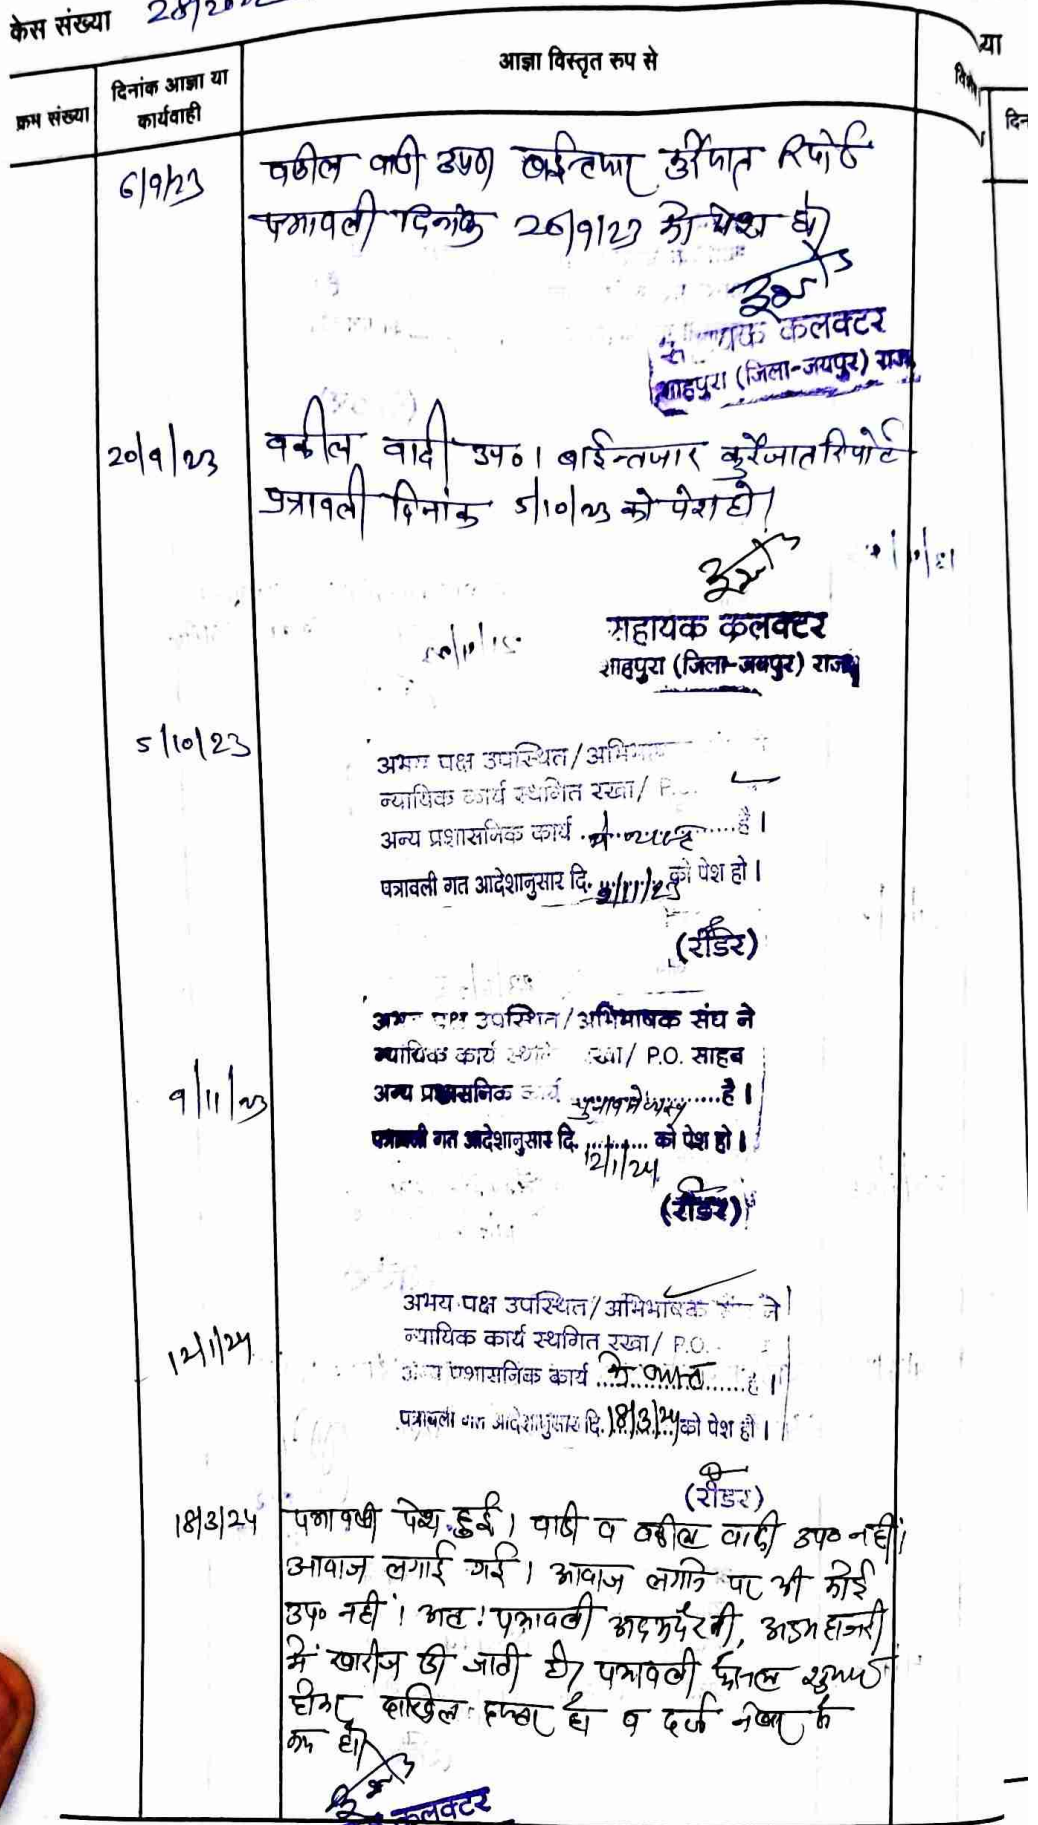 केस संख्या 28/20
या
क्रम संख्या
दिनांक आज्ञा या
कार्यवाही
आज्ञा विस्तृत रुप से
दिन
6/9/23
वकील वादी उप०। बाईन्तजार कुर्रेजात रिपोर्ट
पत्रावली दिनांक 20/9/23 को पेश हो।
कलक्टर
शाहपुरा (जिला-जयपुर) राज०
20/9/23
वकील वादी उप०। बाईन्तजार कुर्रेजात रिपोर्ट
पत्रावली दिनांक 5/10/23 को पेश हो।
सहायक कलक्टर
शाहपुरा (जिला-जयपुर) राज०
5/10/23
अभय पक्ष उपस्थित/
न्यायिक कार्य स्थगित रखा/ P.
अन्य प्रशासनिक कार्य .......... है।
पत्रावली गत आदेशानुसार दि. 9/11/23 को पेश हो।
(रीडर)
9/11/23
अभय पक्ष उपस्थित/अभिभाषक संघ ने
न्यायिक कार्य रखा/ P.O. साहब
अन्य प्रशासनिक कार्य चुनाव में व्यस्त है।
पत्रावली गत आदेशानुसार दि. 12/1/24 को पेश हो।
(रीडर)
12/1/24
अभय पक्ष उपस्थित/अभिभाषक ने
न्यायिक कार्य स्थगित रखा/ P.O.
अन्य प्रशासनिक कार्य में व्यस्त है।
पत्रावली गत आदेशानुसार दि. 18/3/24 को पेश हो।
(रीडर)
18/3/24
पत्रावली पेश हुई। वादी व वकील वादी उप० नहीं।
आवाज लगाई गई। आवाज लगाने पर भी कोई
उप० नहीं। अतः पत्रावली अदम पैरवी, अदम हाजरी
में खारीज की जाती है। पत्रावली फैसल शुमार
होकर दाखिल दफ्तर हो व दर्ज नम्बर से
कम हो।
कलक्टर